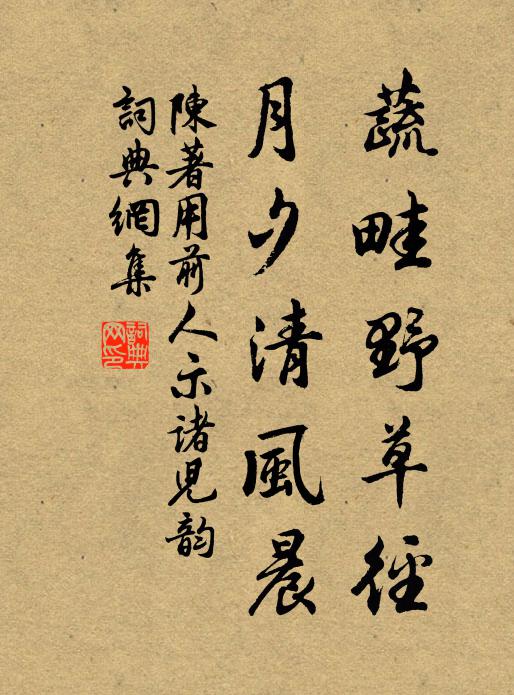 蔬畦野草徑
月夕清風晨
陳著用前人示諸兒韵
詞典網集
詞典网印